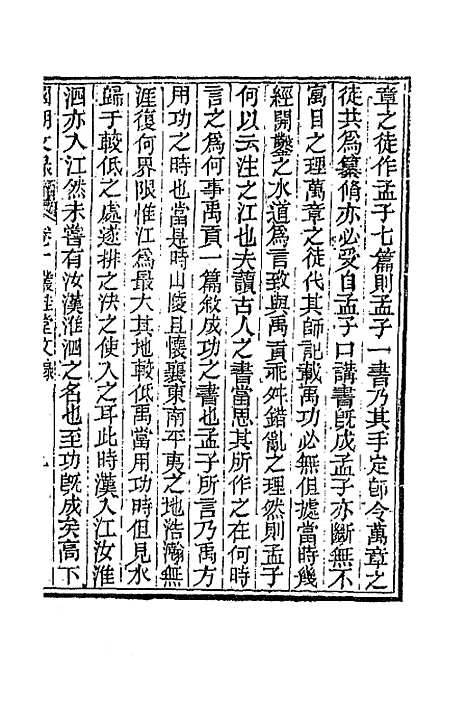 章之徒作孟子七篇則孟子一書乃其手定師令萬章之
徒共為纂脩亦必受自孟子口講書旣成孟子亦斷無不
寓目之理萬章之徒代其師記載禹功必無但據當時幾
經開鑿之水道為言致與禹貢乖舛錯亂之理然則孟子
何以云注之江也夫讀古人之書當思其所作之在何時
言之為何事禹貢一篇敘成功之書也孟子所言乃禹方
用功之時也當是時山陵且懷襄東南平夷之地浩瀚無
涯復何界限惟江為最大其地較低禹當用功時但見水
歸于較低之處遂排之決之使入之耳此時漢入江汝淮
泗亦入江然未嘗有汝漢淮泗之名也至功旣成矣高下
國朝文彔 卷十 叢桂堂文彔 九